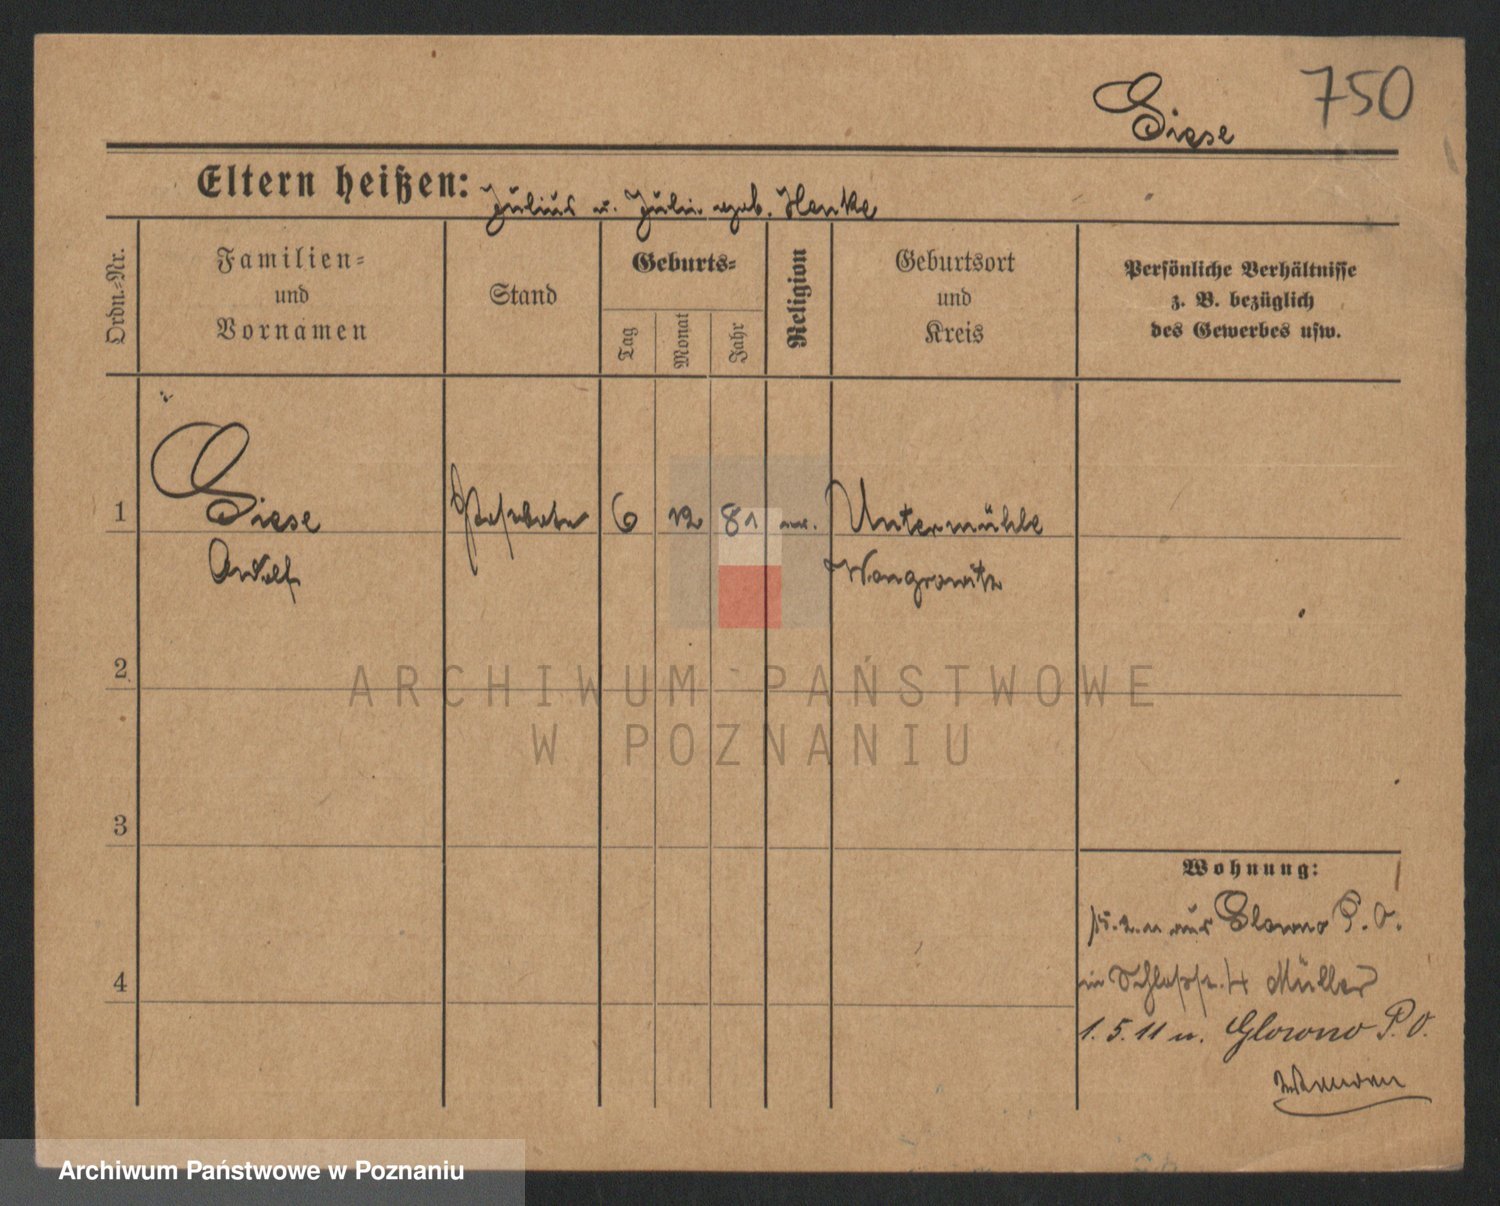 750
Giese
Eltern heißen: Julius u. Julie geb. Henke
Ordn.-Nr.
Familien-
und
Vornamen
Stand
Geburts-
Tag
Monat
Jahr
Religion
Geburtsort
und
Kreis
Persönliche Verhältnisse
z. B. bezüglich
des Gewerbes usw.
1 Giese 6 12 81 Untermühle
Adolf Wongrowitz
2
3
4
Wohnung:
aus Glowno P. O.
in Schloßstr. 4 Müller
1. 5. 11 n. Glowno P. O.
ARCHIWUM PAŃSTWOWE
W POZNANIU
Archiwum Państwowe w Poznaniu